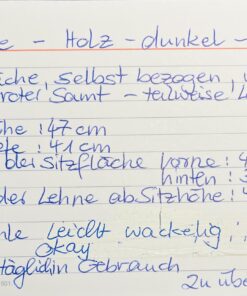 e - Holz - dunkel -
iche, selbst bezogen,
roter Samt - teilweise
he : 47 cm
ete : 41 cm
der Sitzfläche vorne : 4
hinten : 3
der Lehne ab Sitzhöhe : 4
hle leicht wackelig,
okay
täglich in Gebrauch
zu übe